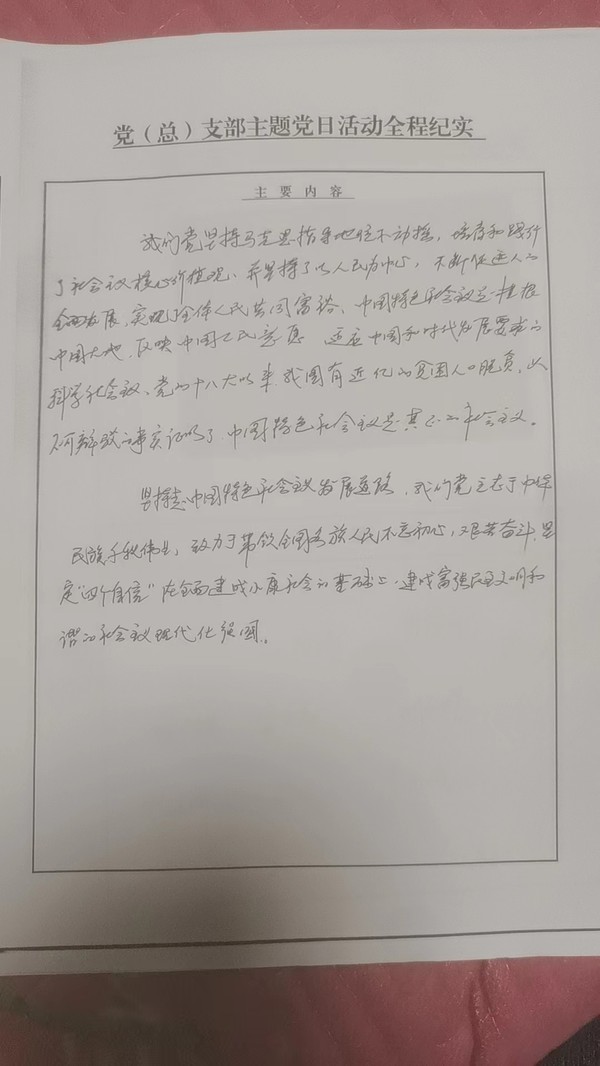 党（总）支部主题党日活动全程纪实
主要内容
我们党坚持马克思指导地位不动摇，培育和践行
了社会主义核心价值观、并坚持了以人民为中心，不断促进人的
全面发展、实现全体人民共同富裕、中国特色社会主义是植根
中国大地、反映中国人民意愿 适应中国和时代发展要求的
科学社会主义、党的十八大以来，我国有近亿的贫困人口脱贫，以
不可辩驳的事实证明了，中国特色社会主义是真正的社会主义。
坚持中国特色社会主义发展道路，我们党立志于中华
民族千秋伟业，致力于带领全国各族人民不忘初心，艰苦奋斗，坚
定“四个自信”在全面建成小康社会的基础上，建成富强民主文明和
谐的社会主义现代化强国。